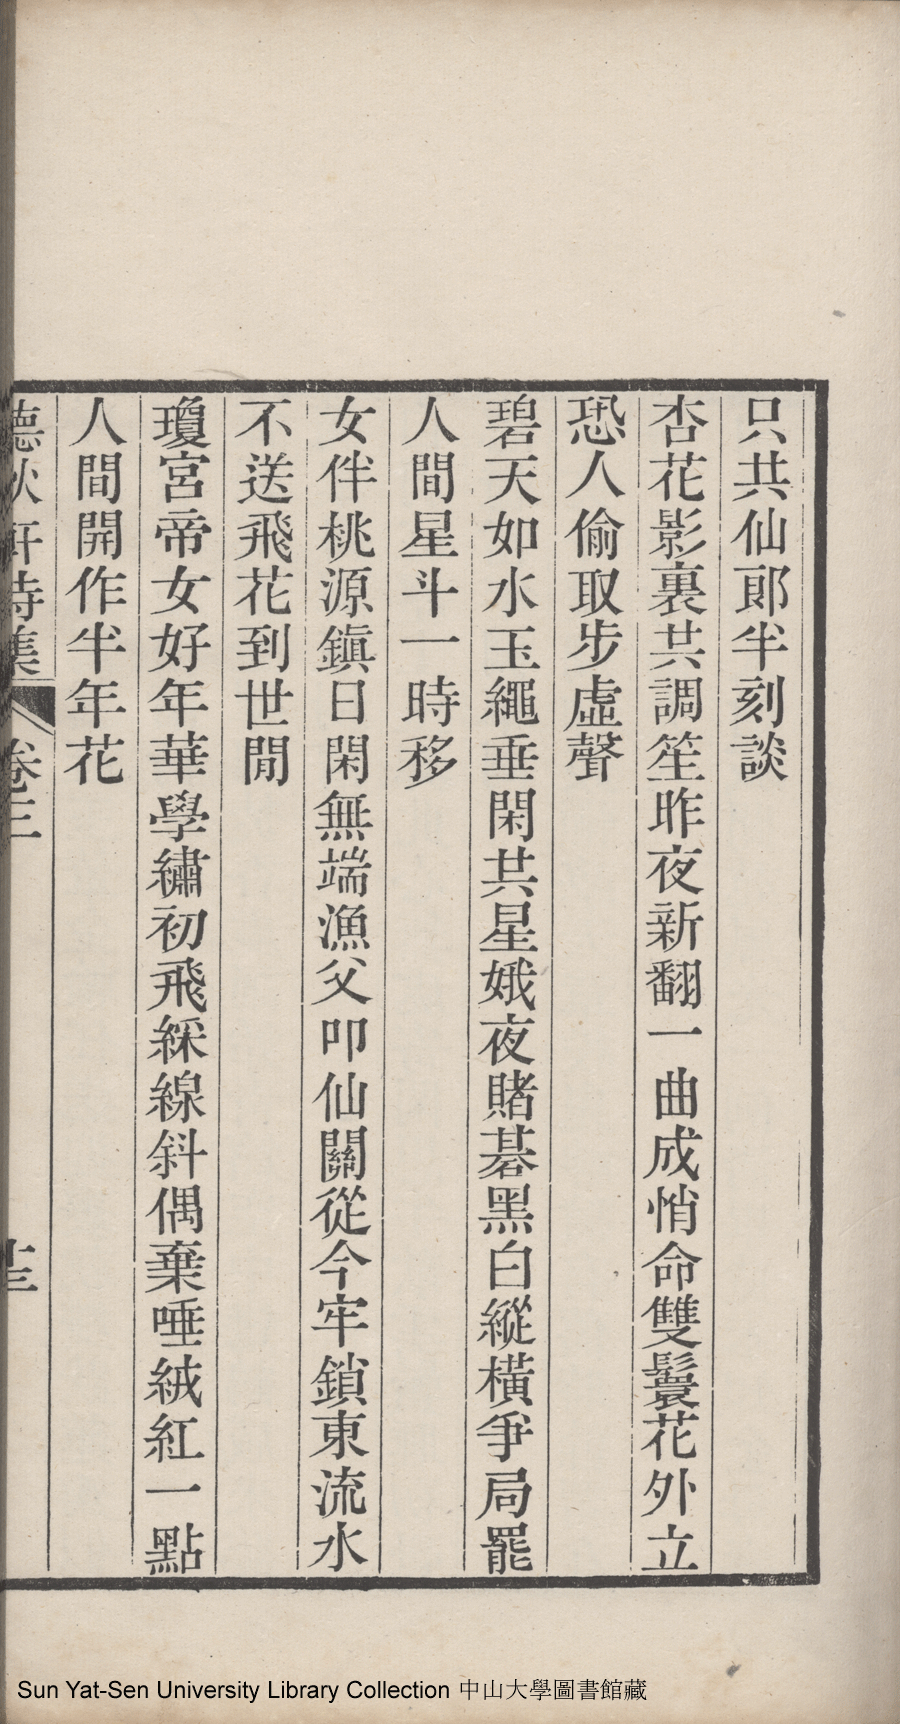 只共仙郎半刻談
杏花影裏共調笙昨夜新翻一曲成悄命雙鬟花外立
恐人偷取步虛聲
碧天如水玉繩垂閑共星娥夜賭碁黑白縱橫爭局罷
人間星斗一時移
女伴桃源鎮日閑無端漁父叩仙關從今牢鎖東流水
不送飛花到世間
瓊宮帝女好年華學繡初飛綵線斜偶棄唾絨紅一點
人間開作半年花
聽秋軒詩集 卷三
Sun Yat-Sen University Library Collection 中山大學圖書館藏